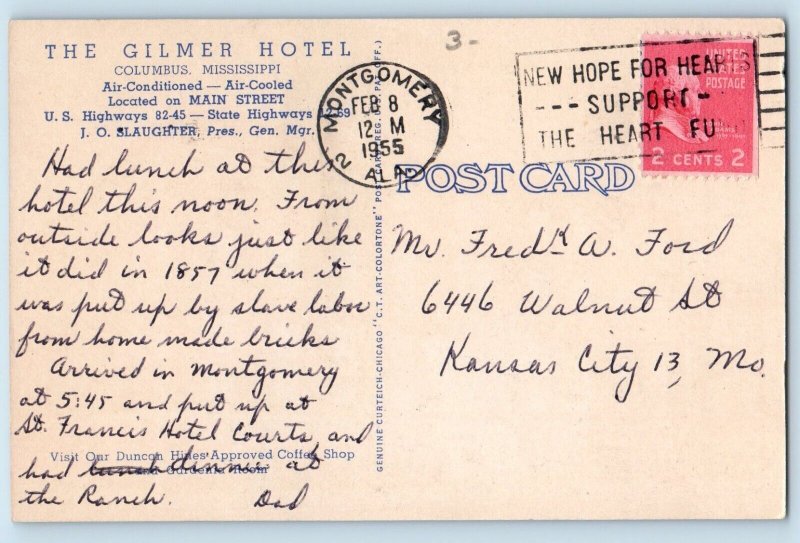 THE GILMER HOTEL
COLUMBUS, MISSISSIPPI
Air-Conditioned — Air-Cooled
Located on MAIN STREET
U. S. Highways 82-45 — State Highways 12-69
J. O. SLAUGHTER, Pres., Gen. Mgr.
Had lunch at this
hotel this noon. From
outside looks just like
it did in 1857 when it
was put up by slave labor
from home made bricks
Arrived in Montgomery
at 5:45 and put up at
St. Francis Hotel Courts and
Visit Our Duncan Hines Approved Coffee Shop
had lunch dinner at
and Gardenia Room
the Ranch. Dad
GENUINE CURTEICH-CHICAGO "C.T. ART-COLORTONE" POST CARD (REG. U.S. PAT. OFF.)
3-
MONTGOMERY
2
FEB 8
12 M
1955
ALA.
NEW HOPE FOR HEARTS
--- SUPPORT -
THE HEART FU
UNITED
STATES
POSTAGE
2 CENTS 2
POST CARD
Mr. Fredk A. Ford
6446 Walnut St
Kansas City 13, Mo.